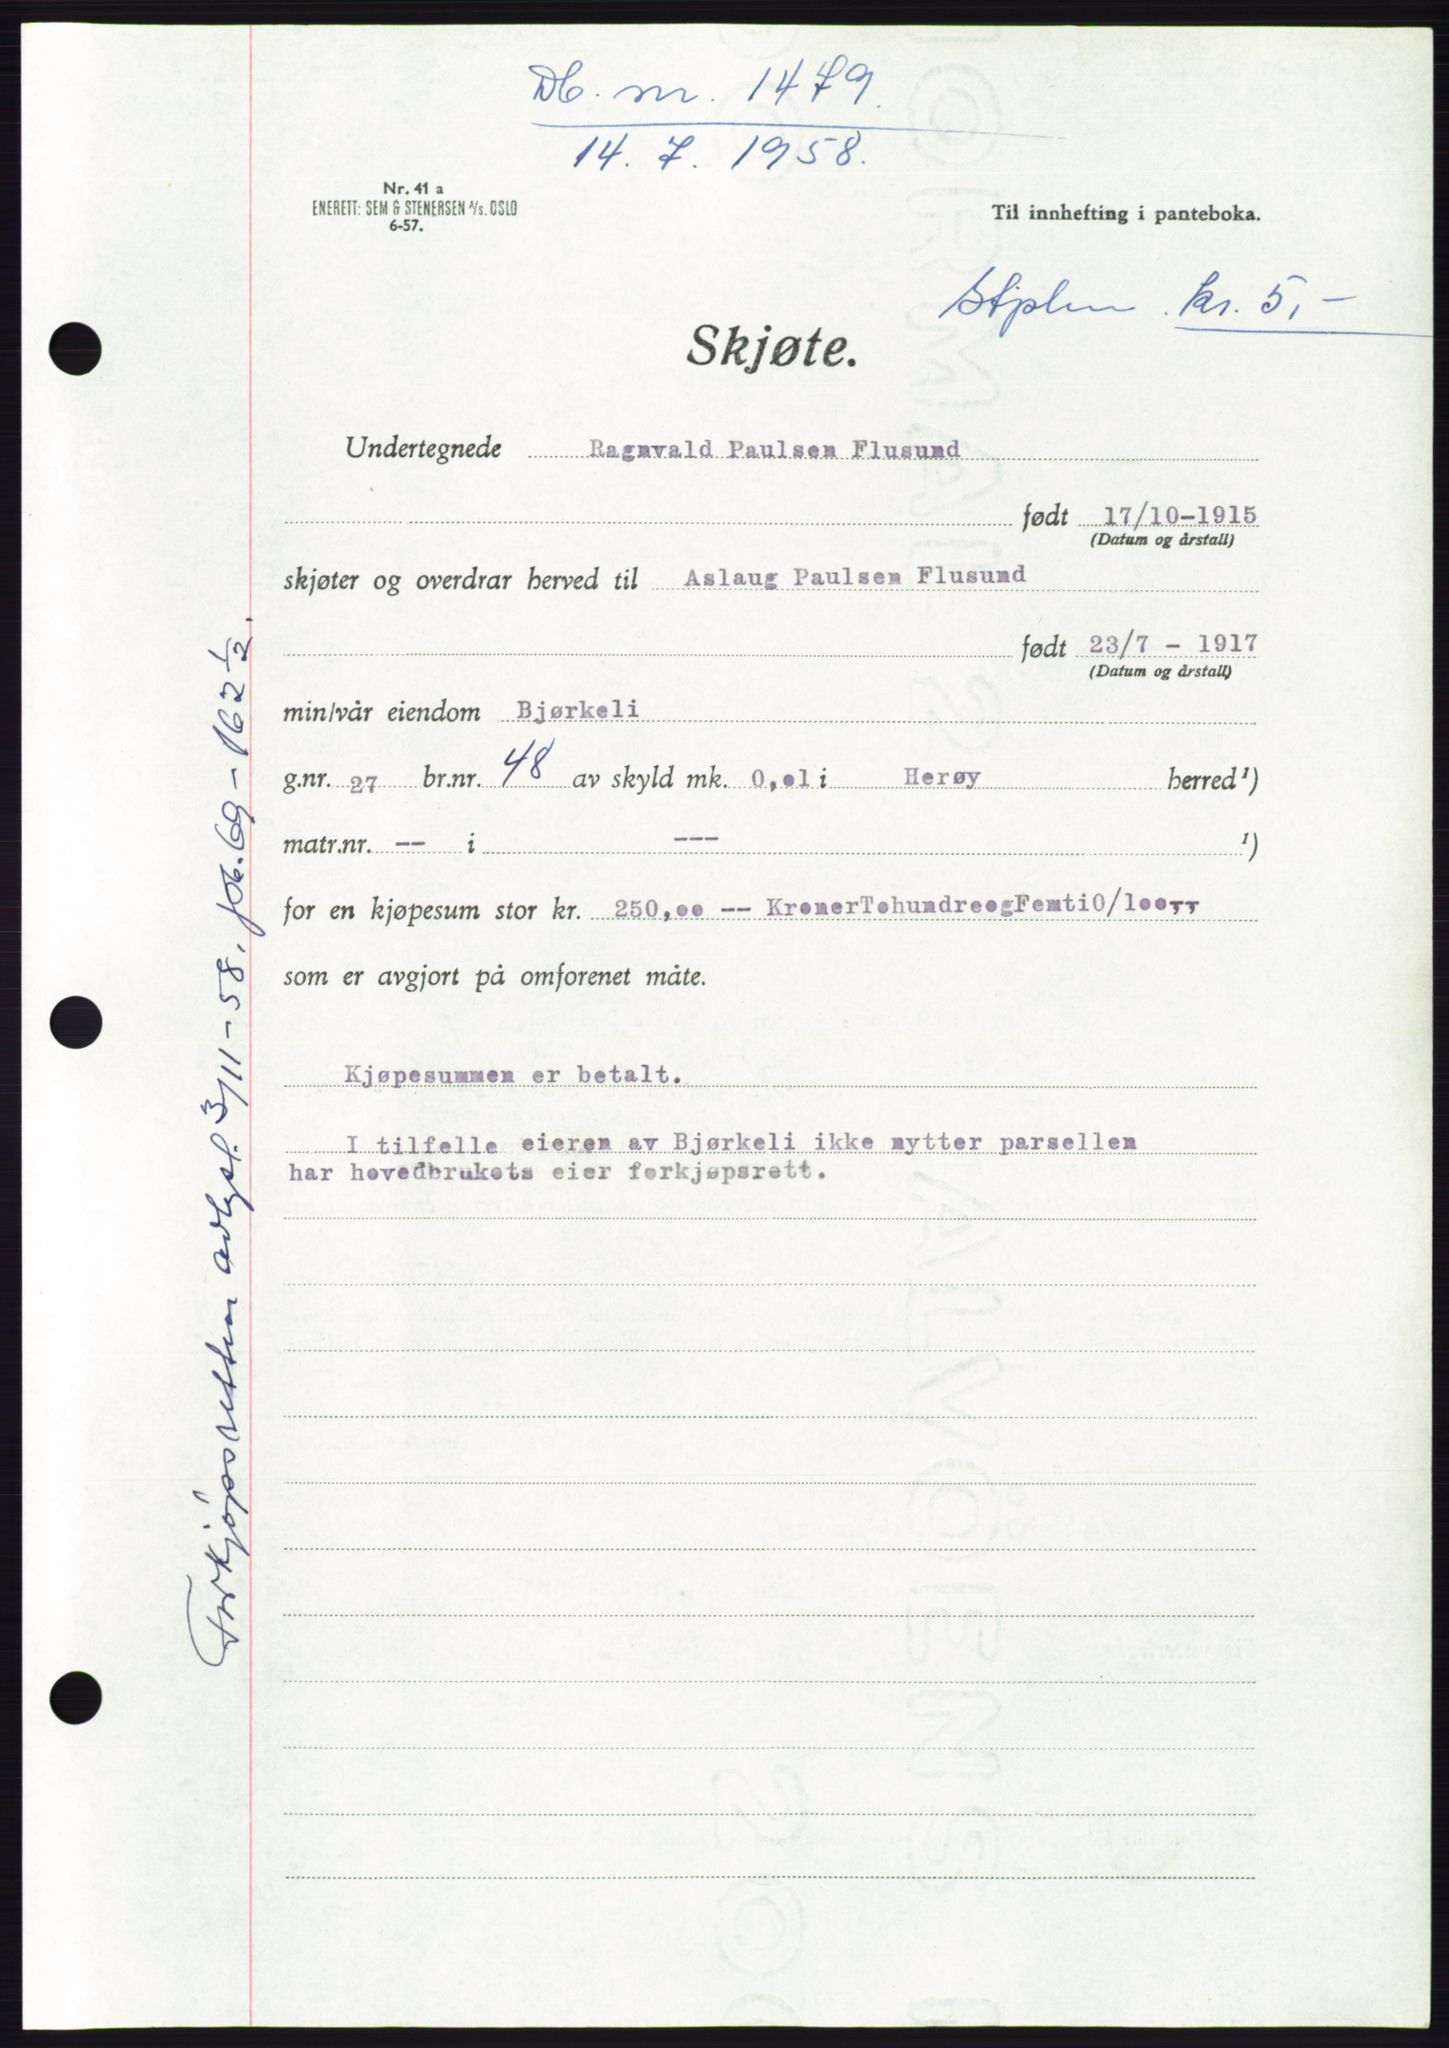 Db. nr. 1479.
14. 7. 1958.
Nr. 41 a
ENERETT: SEM & STENERSEN A/S. OSLO
6-57.
Til innhefting i panteboka.
Stplm. kr. 5,-
Skjøte.
Undertegnede Ragnvald Paulsen Flusund
født 17/10-1915
(Datum og årstall)
skjøter og overdrar herved til Aslaug Paulsen Flusund
født 23/7 - 1917
(Datum og årstall)
min/vår eiendom Bjørkeli
g.nr. 27 br.nr. 48 av skyld mk. 0,o1 i Herøy herred ¹)
matr.nr. -- i --- ¹)
for en kjøpesum stor kr. 250,oo -- KronerTohundreogFemti0/1oo--
som er avgjort på omforenet måte.
Kjøpesummen er betalt.
I tilfelle eieren av Bjørkeli ikke nytter parsellen
har hovedbrukets eier forkjøpsrett.
Forkjøpsretten avlyst 3/11-58. job. 69-162 1/2.